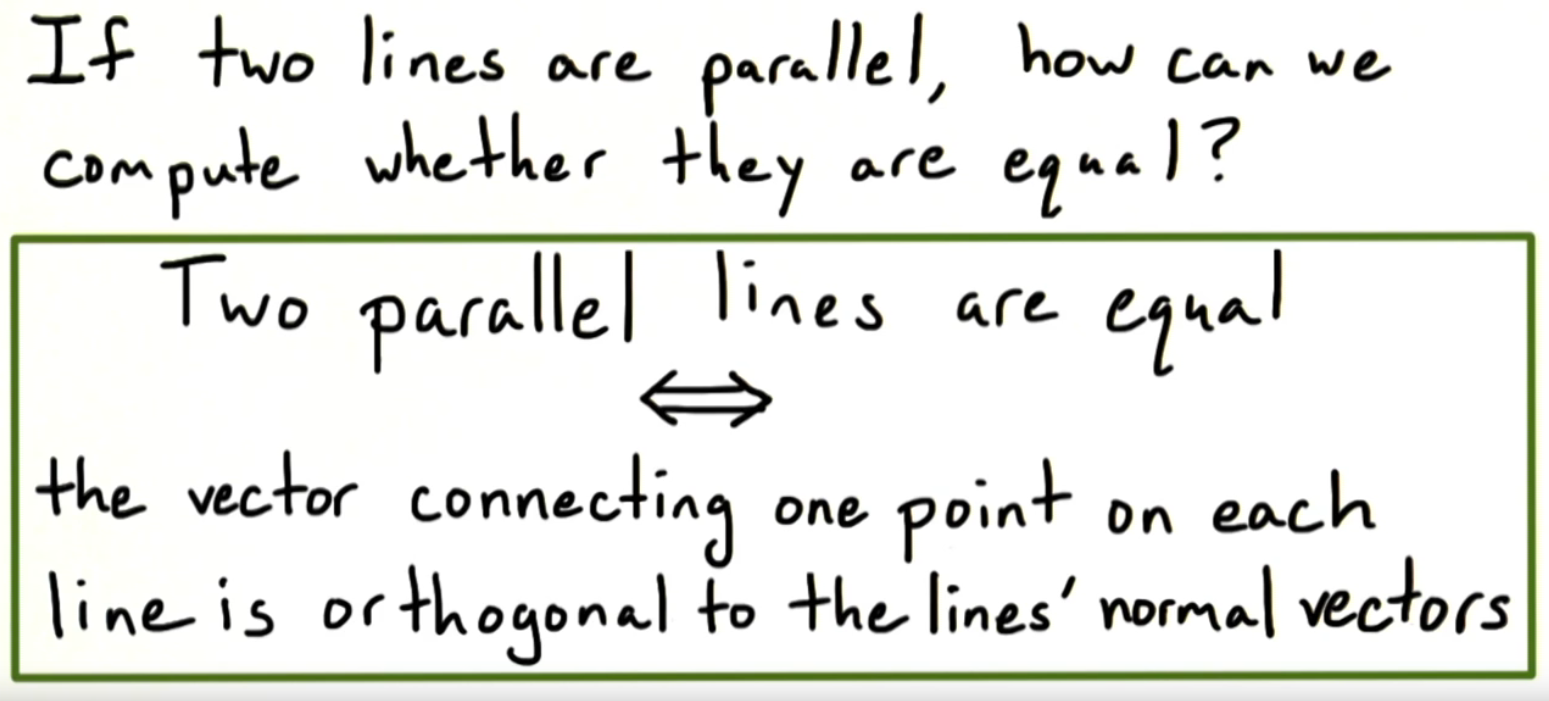 If two lines are parallel, how can we
compute whether they are equal?
Two parallel lines are equal
⇔
the vector connecting one point on each
line is orthogonal to the lines' normal vectors